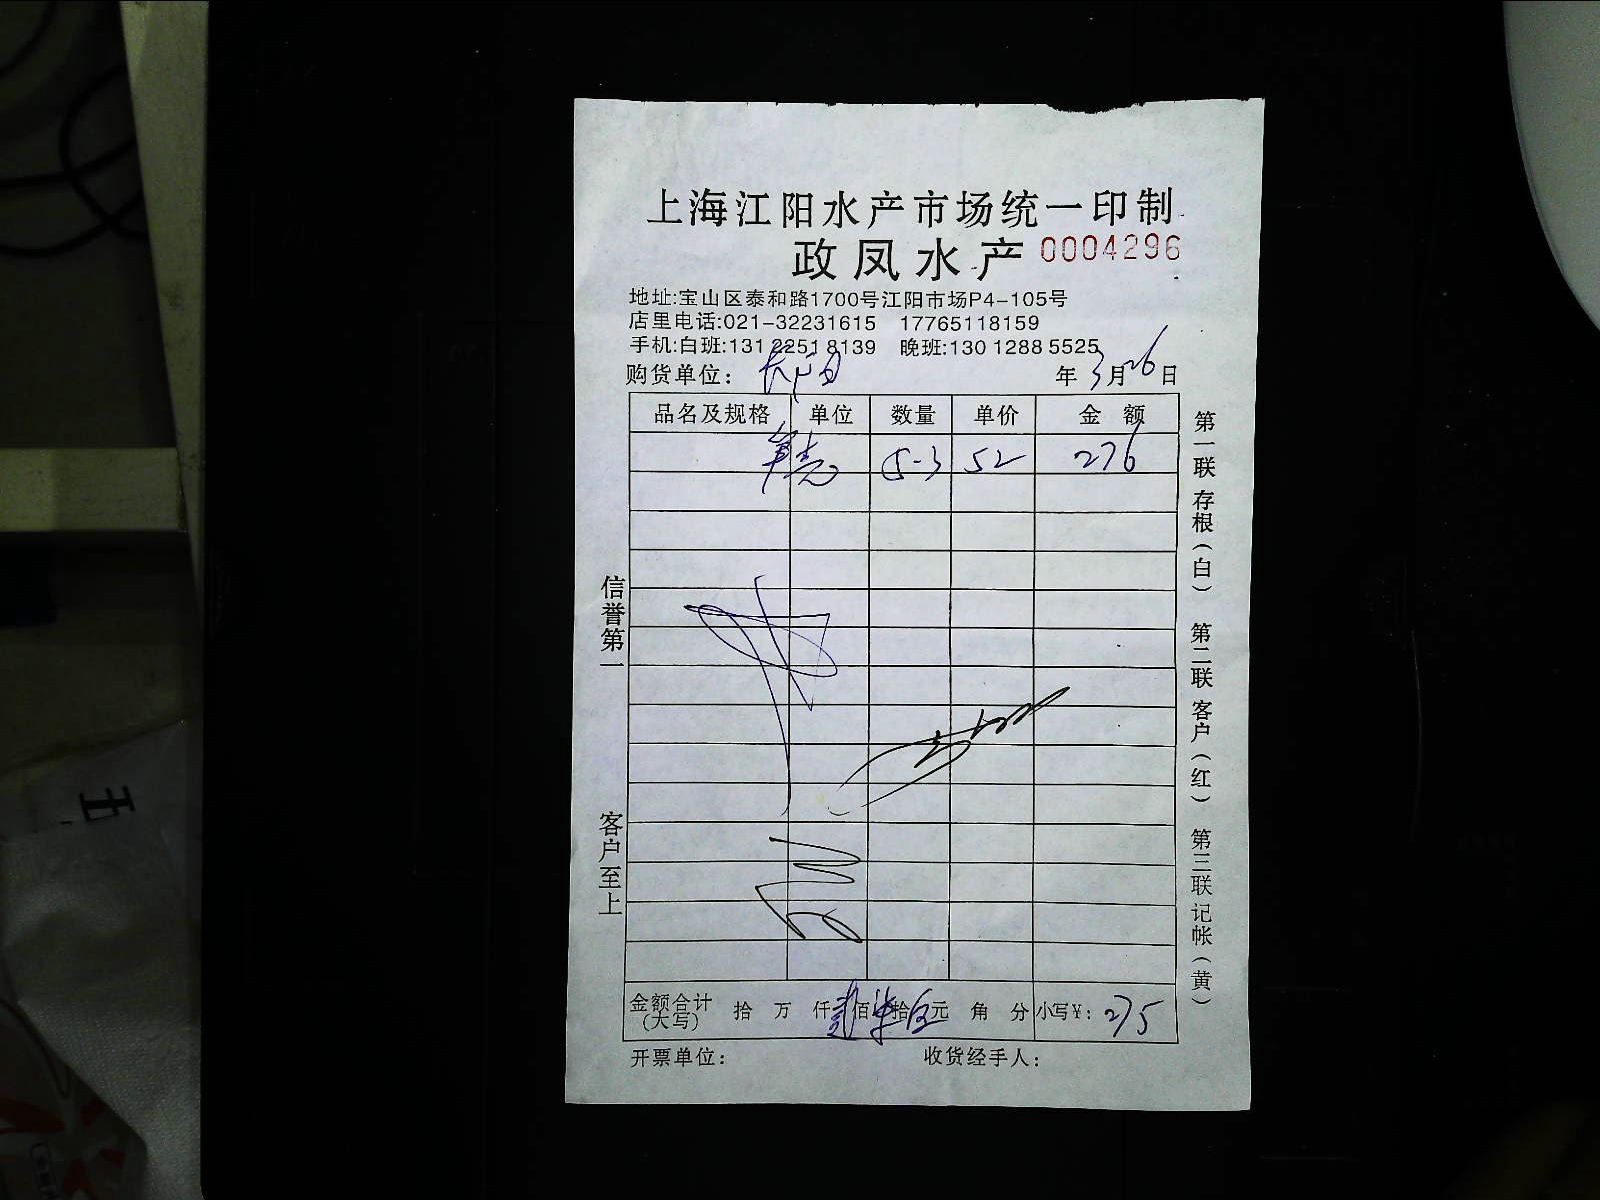 上海江阳水产市场统一印制
政凤水产 0004296
地址:宝山区泰和路1700号江阳市场P4-105号
店里电话:021-32231615 17765118159
手机:白班:131 2251 8139 晚班:130 1288 5525
购货单位: 年 3月26日
品名及规格 单位 数量 单价 金额
5-3 52 276
金额合计(大写) 拾 万 仟 贰佰 柒拾 伍元 角 分 小写¥: 275
开票单位: 收货经手人:
信誉第一
客户至上
第一联 存根(白) 第二联 客户(红) 第三联 记帐(黄)
五